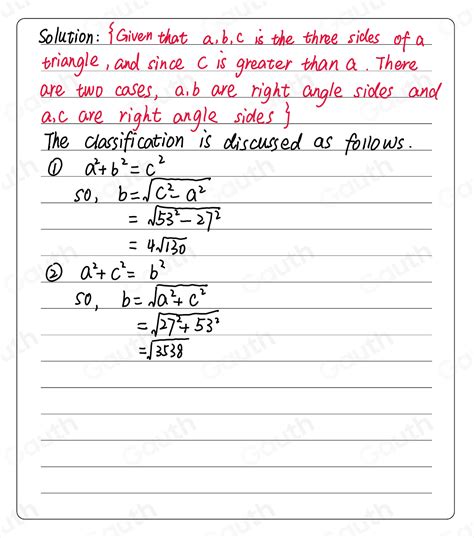 Solution: {Given that a.b.c is the three sides of a
triangle, and since C is greater than a. There
are two cases, a.b are right angle sides and
a.c are right angle sides}
The classification is discussed as follows.
① a²+b²=c²
so, b=√(c²-a²)
=√(53²-27²)
=4√130
② a²+c²=b²
so, b=√(a²+c²)
=√(27²+53²)
=√3538